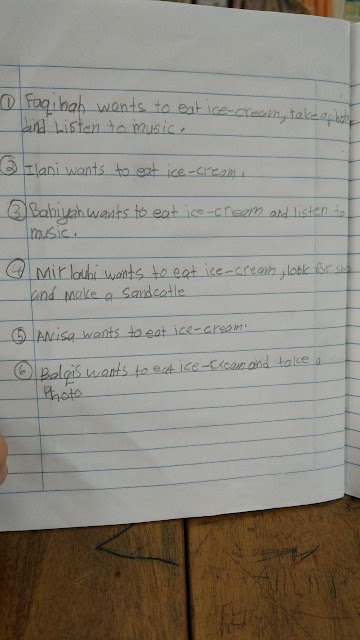 ① Faqihah wants to eat ice-cream, take a photo
and Listen to music.
② Ilani wants to eat ice-cream.
③ Bahiyah wants to eat ice-cream and listen to
music.
④ wants to eat ice-cream, look for
and make a Sandcatle
⑤ Anisa wants to eat ice-cream.
⑥ Balqis wants to eat ice-cream and take a
Photo